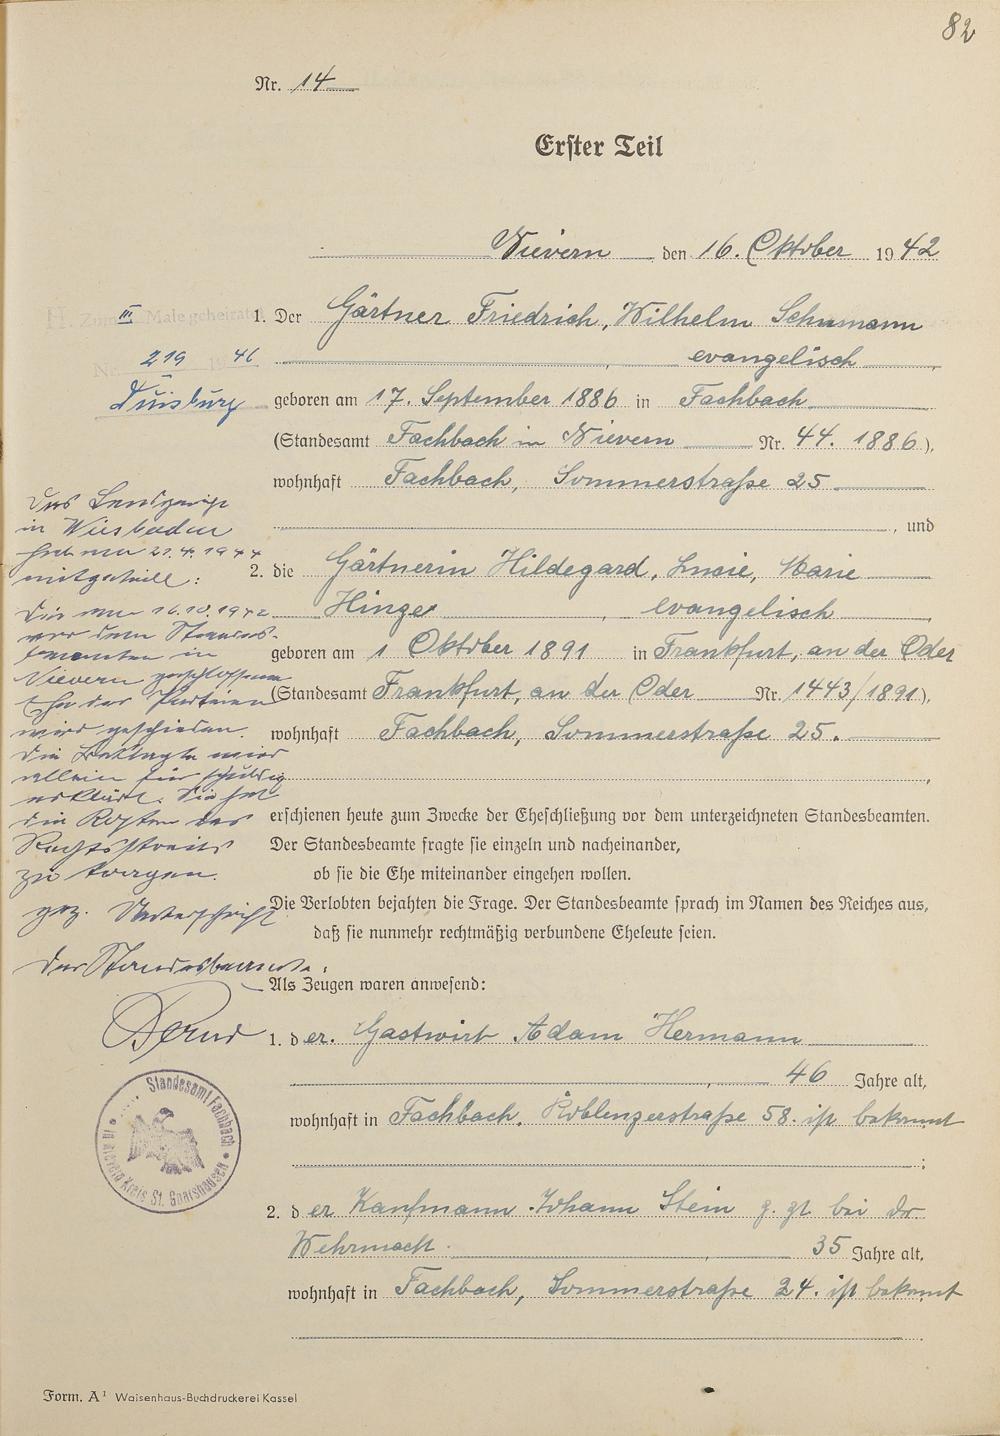 82
Nr. 14
Erster Teil
Nievern den 16. Oktober 1942
H. Zum III Male geheiratet
Nr. 219 1946
Duisburg
1. Der Gärtner Friedrich, Wilhelm Schumann
evangelisch
geboren am 17. September 1886 in Fachbach
(Standesamt Fachbach in Nievern Nr. 44. 1886),
wohnhaft Fachbach, Sommerstraße 25
, und
2. die Gärtnerin Hildegard, Lucie, Marie
Hinze, evangelisch
geboren am 1 Oktober 1891 in Frankfurt, an der Oder
(Standesamt Frankfurt, an der Oder Nr. 1443/1891),
wohnhaft Fachbach, Sommerstraße 25.
Das Landgericht
in Wiesbaden
hat am 21.4.1944
mitgeteilt:
Die am 16.10.1942
vor dem Standes-
beamten in
Nievern geschlossene
Ehe der Parteien
wird geschieden.
Die Beklagte wird
allein für schuldig
erklärt. Sie hat
die Kosten des
Rechtsstreits
zu tragen.
gez. Unterschrift
Der Standesbeamte:
erschienen heute zum Zwecke der Eheschließung vor dem unterzeichneten Standesbeamten.
Der Standesbeamte fragte sie einzeln und nacheinander,
ob sie die Ehe miteinander eingehen wollen.
Die Verlobten bejahten die Frage. Der Standesbeamte sprach im Namen des Reiches aus,
daß sie nunmehr rechtmäßig verbundene Eheleute seien.
Als Zeugen waren anwesend:
1. der. Gastwirt Adam Hermann
46 Jahre alt,
wohnhaft in Fachbach. Koblenzerstraße 58. ist bekannt
;
Standesamt Fachbach
in Nievern Kreis St. Goarshausen
2. der Kaufmann Johann Stein z. Zt. bei der
Wehrmacht. 35 Jahre alt,
wohnhaft in Fachbach, Sommerstraße 24. ist bekannt
Form. A¹ Waisenhaus-Buchdruckerei Kassel